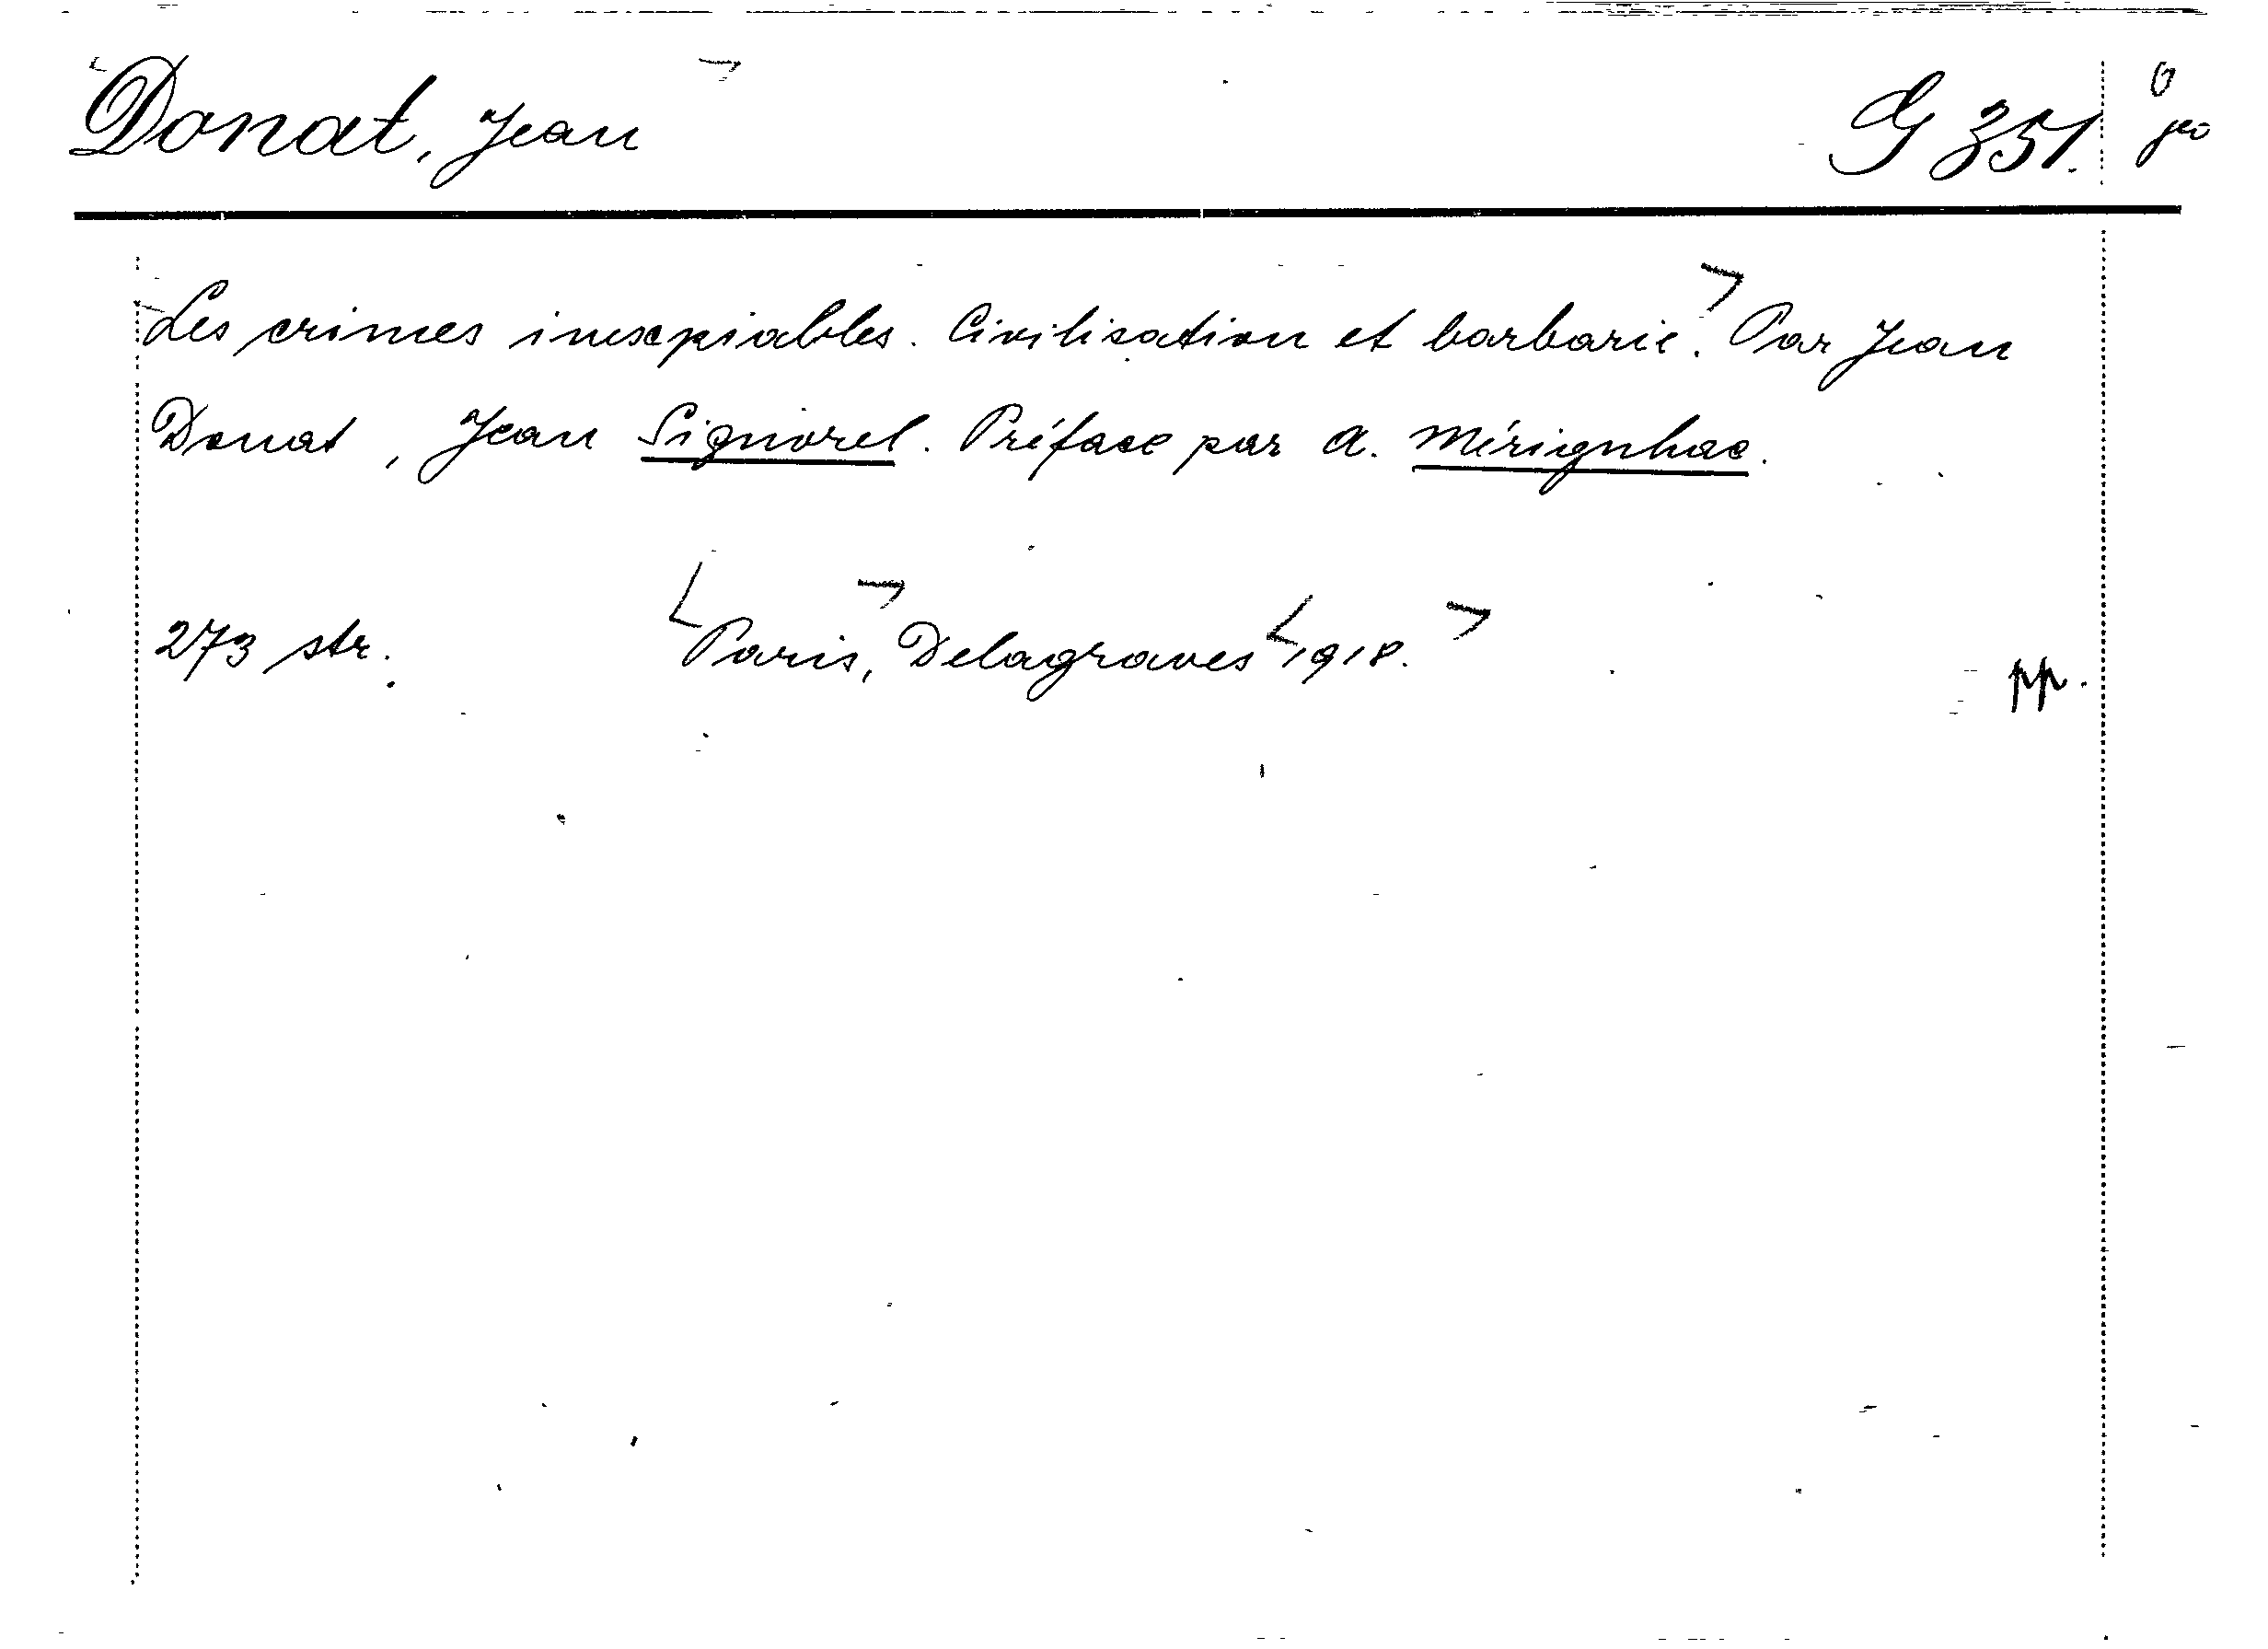 Donat, Jean G 351.
Les crimes inexpiables. Civilisation et barbarie. Par Jean
Donat, Jean Signorel. Préface par A. Mérignhac.
273 str. Paris, Delagraves 1918.
pp.